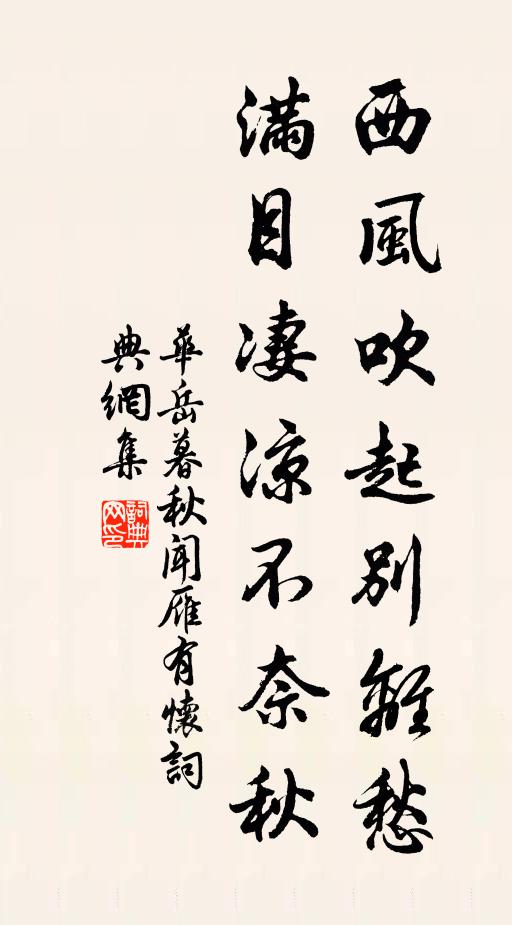 西風吹起別離愁
滿目凄涼不奈秋
華岳暮秋聞雁有懷詞
典網集
詞典网印